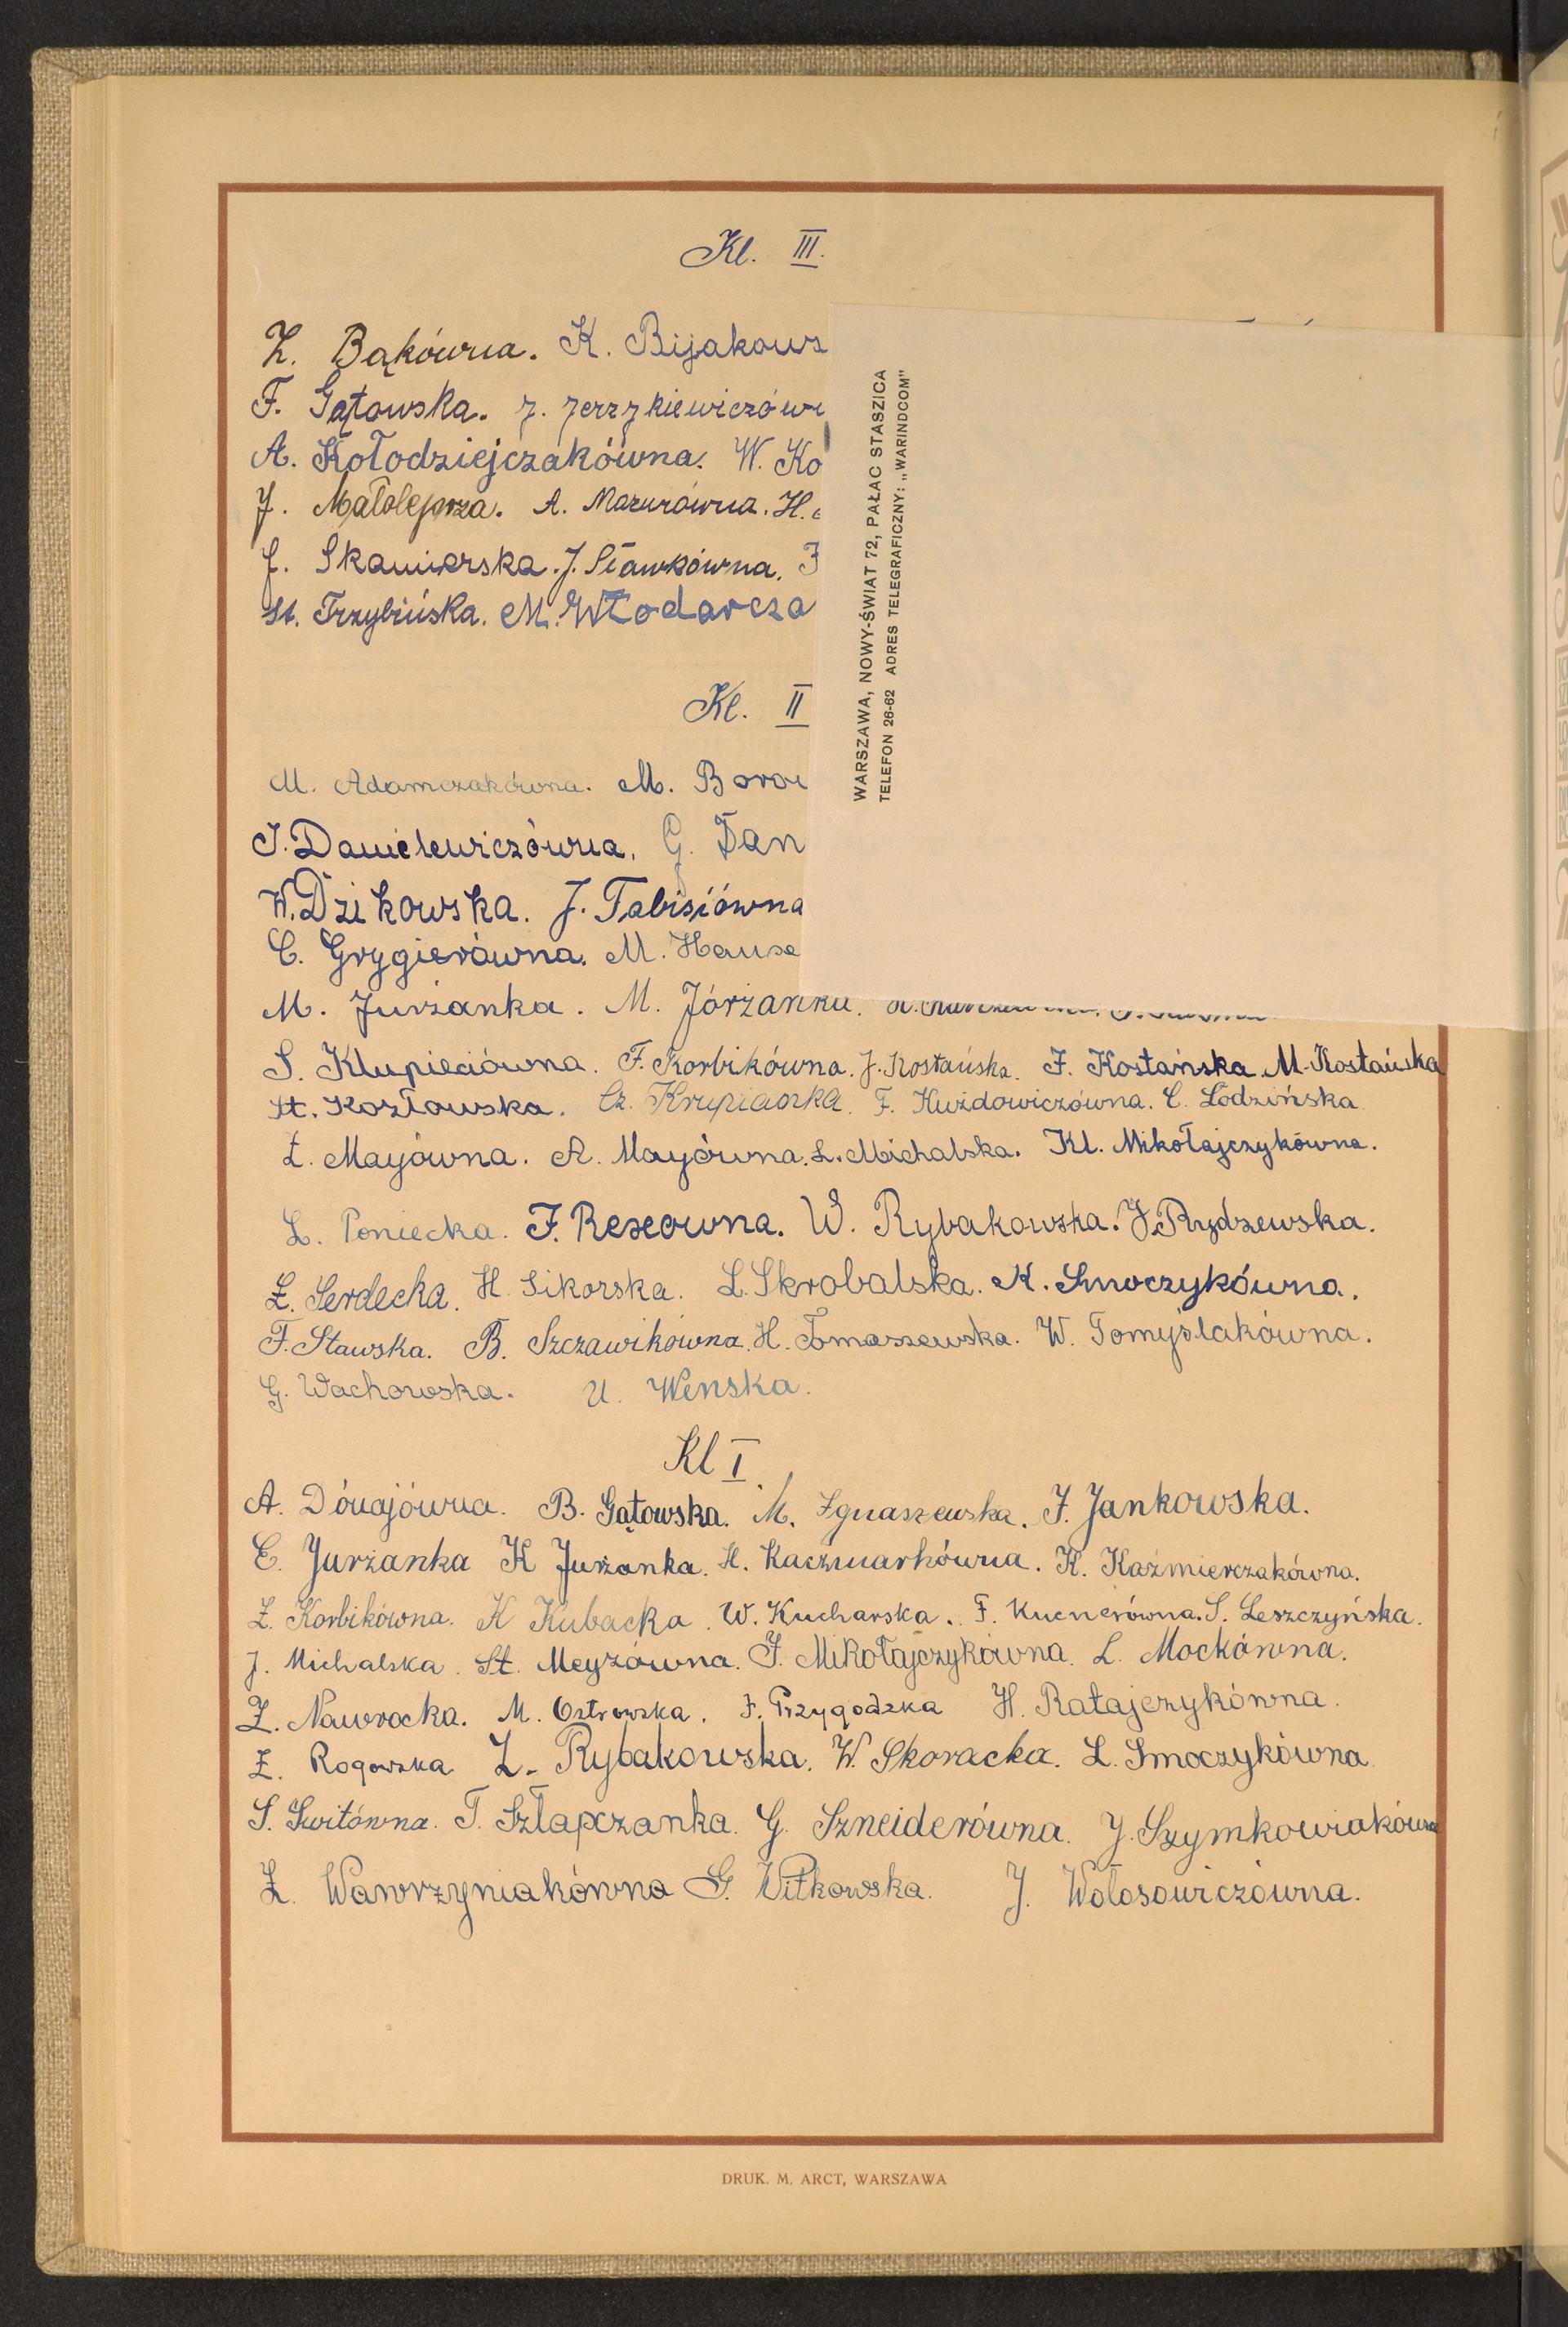 Kl. III.
Z. Bąkówna. K. Bijakows
F. Gątowska. J. Jerzykiewiczówn
A. Kołodziejczakówna. W. Ko
J. Małolepsza. A. Mazurówna. H.
J. Skamierska. J. Sławkówna.
St. Trzybińska. M. Włodarcza
WARSZAWA, NOWY-ŚWIAT 72, PAŁAC STASZICA
TELEFON 26-62 ADRES TELEGRAFICZNY: „WARINDCOM"
Kl. II
M. Adamczakówna. M. Boro
J. Danielewiczówna. G. Dan
W. Dzikowska. J. Fabisiówna
C. Grygierówna. M. Hause
M. Jurżanka. M. Jórżanka.
S. Klupieciówna. F. Korbikówna. J. Kostańska. F. Kostańska. M. Kostańska
St. Kozłowska. Cz. Krupianka. F. Kuźdowiczówna. C. Łodzińska
Ł. Mayówna. A. Mayówna. L. Michalska. Kl. Mikołajczykówna.
L. Poniecka. F. Rexeówna. W. Rybakowska. J. Rydzewska.
Z. Serdecka. H. Sikorska. L. Skrobalska. K. Smoczykówna.
F. Stawska. B. Szczawikówna. H. Tomaszewska. W. Tomyślakówna.
G. Wachowska. U. Wenska.
Kl I
A. Dónajówna. B. Gątowska. M. Ignaszewska. J. Jankowska.
C. Jurżanka K Jurżanka. H. Kaczmarkówna. K. Kaźmierczakówna.
Z. Korbikówna. K Kubacka. W. Kucharska. F. Kucnerówna. S. Leszczyńska.
J. Michalska. St. Meyzówna. J. Mikołajczykówna. L. Mockówna.
Z. Nawrocka. M. Ostrowska. F. Przygodzka H. Ratajczykówna.
Z. Rogowska Z. Rybakowska. W. Skoracka. L. Smoczykówna.
S. Switówna. T. Szłapczanka. G. Szneiderówna. J. Szymkowiakówna
Z. Wawrzyniakówna G. Witkowska. J. Wołosowiczówna.
DRUK. M. ARCT, WARSZAWA